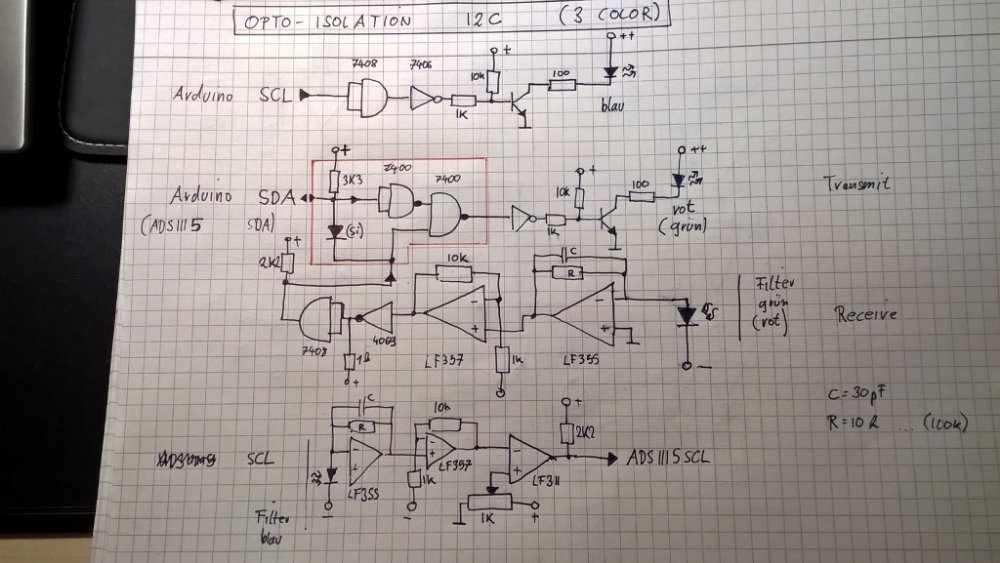 OPTO-ISOLATION I2C (3 COLOR)
++
+
7408 7406 10k 100
Arduino SCL
1K blau
+ ++
7400
3K3 7400 + 100
Arduino SDA 10k Transmit
(ADS1115 SDA) (Si) 1K rot
(grün)
+
2K2 10k C
R Filter
grün
(rot)
- - Receive
+ +
7408 4069 LF357 1K LF355
+ -
C = 30pF
C 10k + R = 10k ... (100k)
R 2K2
SCL - - - ADS1115 SCL
+ + +
LF355 LF357 LF311
1K
- - 1K +
Filter
blau